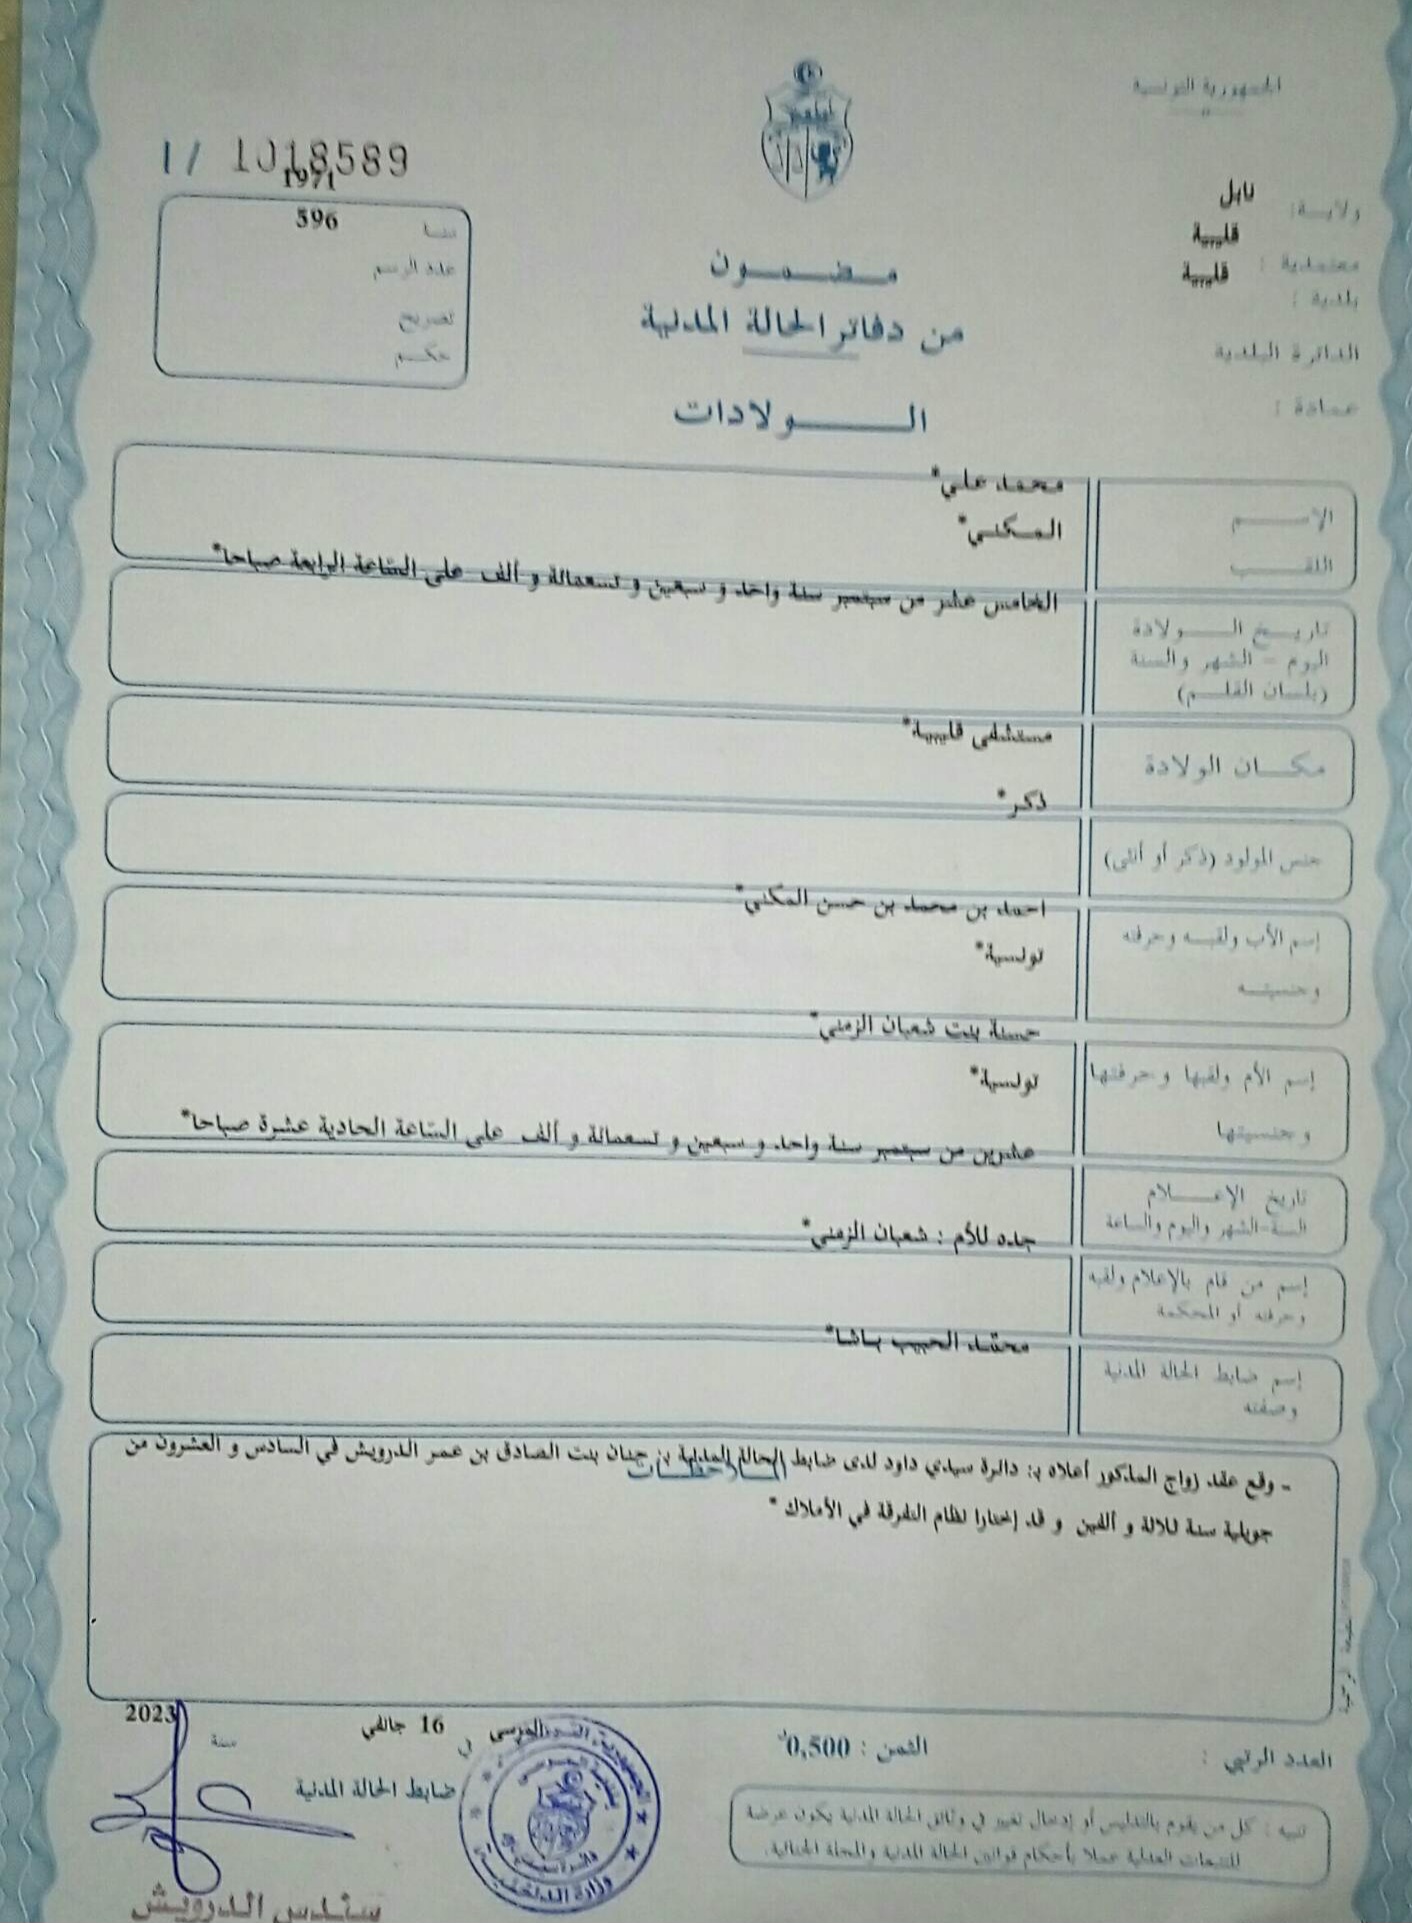 الجمهورية التونسية
I / 1018589
ولاية: نابل
معتمدية : قليبية
بلدية : قليبية
الدائرة البلدية
عمادة :
1971
سنة 596
عدد الرسم
تصريح
حكم
مضمون
من دفاتر الحالة المدنية
الولادات
الاسم محمد علي*
اللقب المكني*
الخامس عشر من سبتمبر سنة واحد و سبعين و تسعمائة و ألف على السّاعة الرابعة صباحا*
تاريخ الولادة
اليوم - الشهر والسنة
(بلسان القلم)
مستشفى قليبية*
مكان الولادة
ذكر*
جنس المولود (ذكر أو أنثى)
احمد بن محمد بن حسن المكني*
إسم الأب ولقبه وحرفته
تونسية*
وجنسيته
حسنة بنت شعبان الزمني*
إسم الأم ولقبها وحرفتها
تونسية*
وجنسيتها
عشرين من سبتمبر سنة واحد و سبعين و تسعمائة و ألف على السّاعة الحادية عشرة صباحا*
تاريخ الإعلام
السنة-الشهر واليوم والساعة
جده للأم : شعبان الزمني*
إسم من قام بالإعلام ولقبه
وحرفته أو المحكمة
محمّد الحبيب باشا*
إسم ضابط الحالة المدنية
وصفته
الملاحظات
- وقع عقد زواج المذكور أعلاه بـ: دائرة سيدي داود لدى ضابط الحالة المدنية بـ: جنان بنت الصادق بن عمر الدرويش في السادس و العشرون من
جويلية سنة ثلاثة و ألفين و قد إختارا نظام التفرقة في الأملاك *
العدد الرتبي :
الثمن : 0,500د
المرسى في 16 جانفي سنة 2023
ضابط الحالة المدنية
تنبيه : كل من يقوم بالتدليس أو إدخال تغيير في وثائق الحالة المدنية يكون عرضة
للتتبعات العدلية عملا بأحكام قوانين الحالة المدنية والمجلة الجنائية.
الجمهورية التونسية
بلدية المرسى
وزارة الداخلية
سندس الدرويش